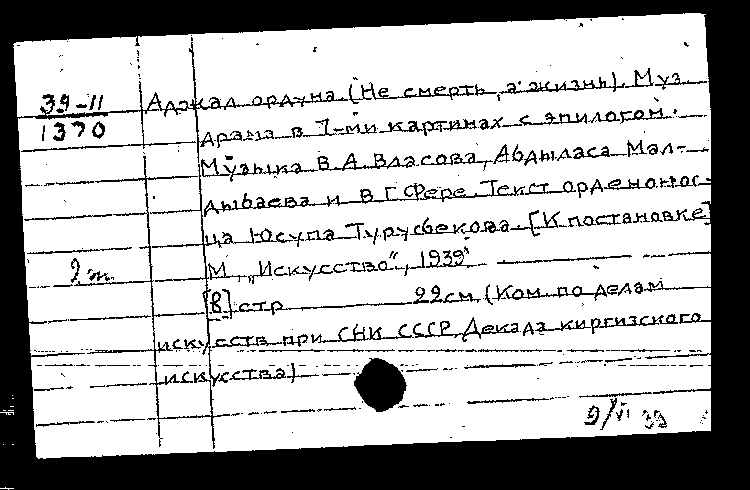 39-11
1370
Аджал ордуна. (Не смерть, а жизнь). Муз.
драма в 7-ми картинах с эпилогом.
Музыка В.А. Власова, Абдыласа Мал-
дыбаева и В.Г. Фере. Текст орденонос-
ца Юсупа Турусбекова. [К постановке]
2 эк.
М., „Искусство“, 1939
[8] стр 22см. (Ком. по делам
искусств при СНК СССР. Декада киргизского
искусства)
9/VI 39